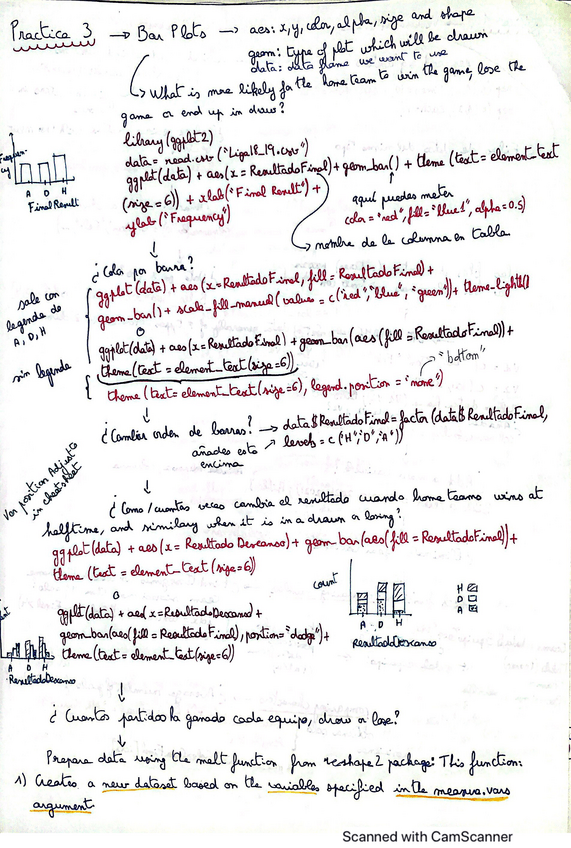 Practica 3 → Bar Plots → aes: x, y, color, alpha, size and shape
geom: type of plot which will be drawn
data: data frame we want to use
What is more likely for the home team to win the game, lose the
game or end up in draw?
library(ggplot2)
data = read.csv("Liga18_19.csv")
ggplot(data) + aes(x = ResultadoFinal) + geom_bar() + theme (text = element_text
(size = 6)) + xlab("Final Result") +
ylab("Frequency")
aquí puedes meter
color = "red", fill = "blue1", alpha = 0.5)
nombre de la columna en tabla
Frequen-
cy
A D H
Final Result
¿Color por barra?
ggplot(data) + aes(x = ResultadoFinal, fill = ResultadoFinal) +
geom_bar() + scale_fill_manual(values = c("red", "blue", "green")) + theme_light()
sale con
legenda de
A, D, H
o
ggplot(data) + aes(x = ResultadoFinal) + geom_bar(aes(fill = ResultadoFinal)) +
theme(text = element_text(size=6))
"bottom"
sin legenda
theme (text = element_text(size=6), legend.position = "none")
¿Cambiar orden de barras? → data$ResultadoFinal = factor (data$ResultadoFinal,
levels = c("H","D","A"))
añades esto
encima
Ver position Adjusts
in cheatsheet
¿Como/cuantas veces cambia el resultado cuando home teams wins at
halftime, and similary when it is in a drawn or losing?
ggplot(data) + aes(x = ResultadoDescanso) + geom_bar(aes(fill = ResultadoFinal)) +
theme (text = element_text(size=6))
count
A D H
ResultadoDescanso
H
D
A
o
ggplot(data) + aes(x = ResultadoDescanso) +
geom_bar(aes(fill = ResultadoFinal), position = "dodge") +
theme (text = element_text(size=6))
A D H
ResultadoDescanso
¿Cuantos partidos ha ganado cada equipo, draw or lose?
Prepare data using the melt function from reshape2 package: This function:
1) Creates a new dataset based on the variables specified in the measure.vars
argument.
Scanned with CamScanner